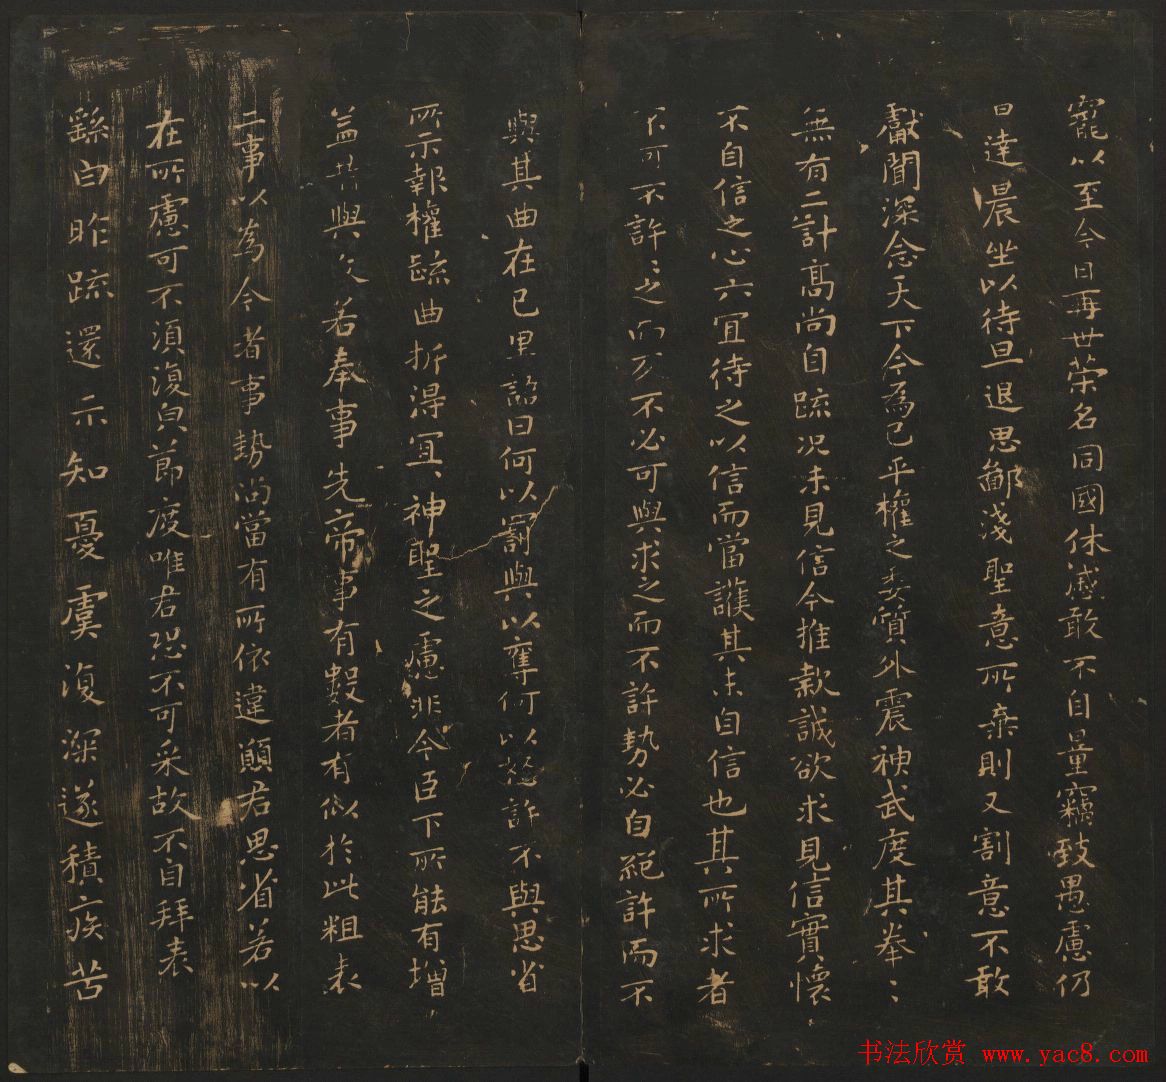 寵以至今日再世榮名同國休慼敢不自量竊致愚慮仍
日達晨坐以待旦退思鄙淺聖意所棄則又割意不敢
獻聞深念天下今為已平權之委質外震神武度其拳〻
無有二計高尚自疏況未見信今推款誠欲求見信實懷
不自信之心亦宜待之以信而當護其未自信也其所求者
不可不許〻之而反不必可與求之而不許勢必自絕許而不
與其曲在己里語曰何以罰與以奪何以怒許不與思省
所示報權疏曲折得宜〻神聖之慮非今臣下所能有增〻
益昔與文若奉事先帝事有數者有似於此粗表
二事以為今者事勢尚當有所依違願君思省若以
在所慮可不須復皃節度唯君恐不可采故不自拜表
繇白昨疏還示知憂虞復深遂積疾苦
书法欣赏 www.yac8.com